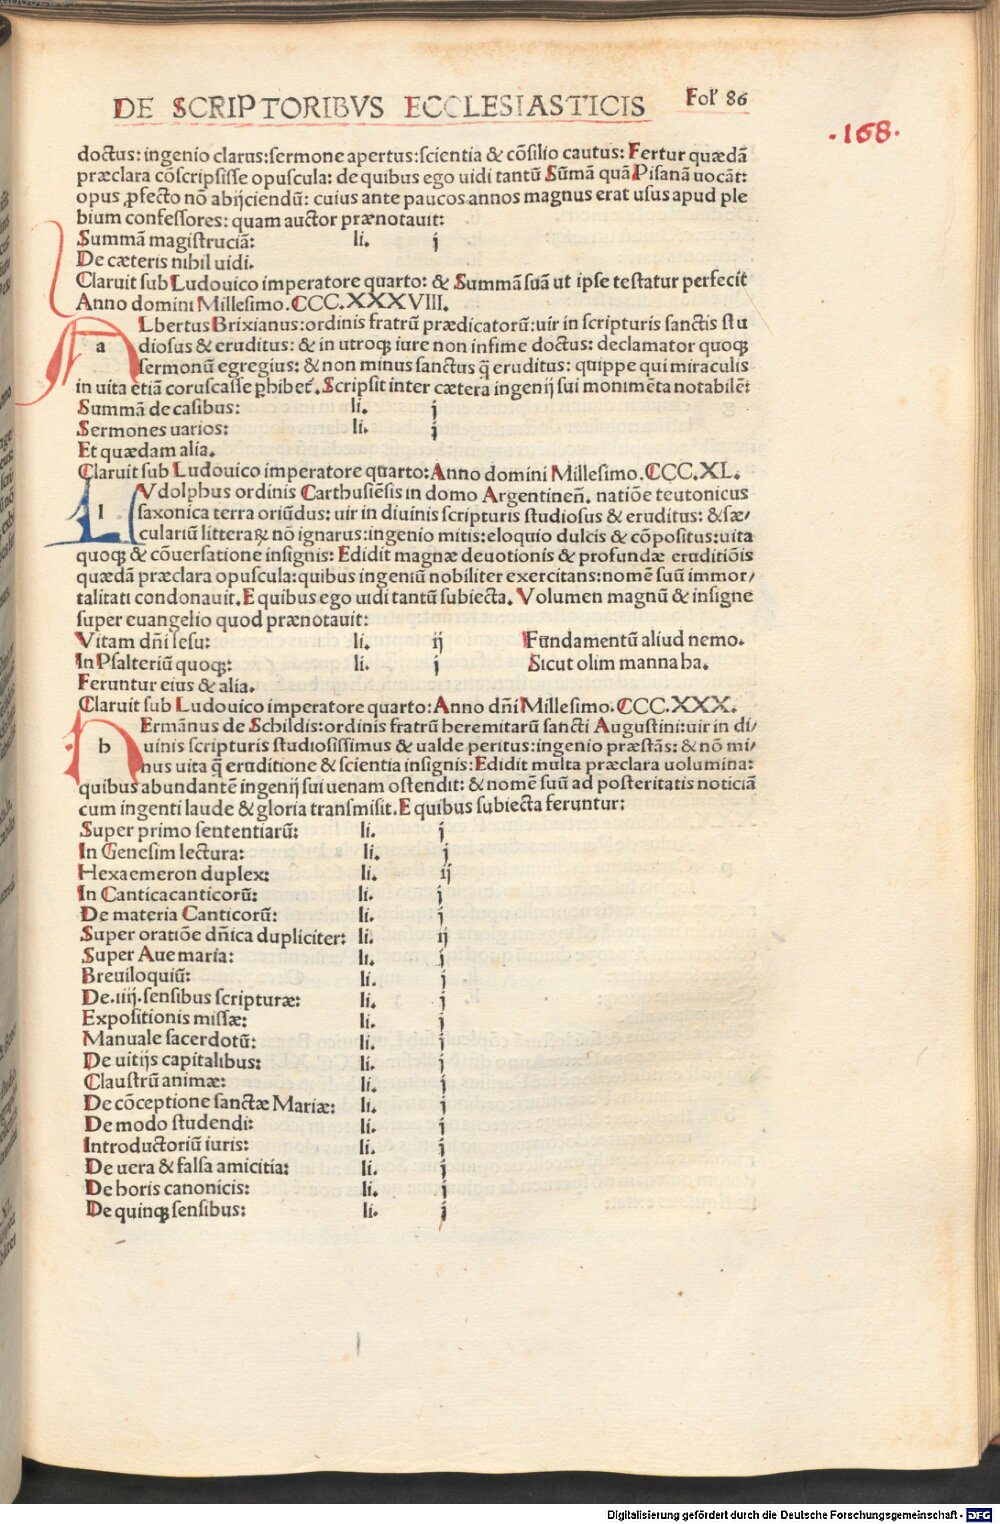 DE SCRIPTORIBVS ECCLESIASTICIS Fol' 86
.168.
doctus: ingenio clarus: sermone apertus: scientia & cõsilio cautus: Fertur quædã
præclara cõscripsisse opuscula: de quibus ego uidi tantũ Sũmã quã Pisanã uocãt:
opus ꝓfecto nõ abijciendũ: cuius ante paucos annos magnus erat usus apud ple
bium confessores: quam auctor prænotauit:
Summã magistruciã: li. j
De cæteris nihil uidi.
Claruit sub Ludouico imperatore quarto: & Summã suã ut ipse testatur perfecit
Anno domini Millesimo. CCC.XXXVIII.
a Lbertus Brixianus: ordinis fratrũ prædicatorũ: uir in scripturis sanctis stu
diosus & eruditus: & in utroqꝫ iure non infime doctus: declamator quoqꝫ
sermonũ egregius: & non minus sanctus q̃ eruditus: quippe qui miraculis
in uita etiã coruscasse ꝑhibet̃. Scripsit inter cætera ingenij sui monimẽta notabilẽ:
Summã de casibus: li. j
Sermones uarios: li. j
Et quædam alia.
Claruit sub Ludouico imperatore quarto: Anno domini Millesimo. CCC.XL.
l Vdolphus ordinis Carthusiẽsis in domo Argentineñ. natiõe teutonicus
saxonica terra oriũdus: uir in diuinis scripturis studiosus & eruditus: & sæ⸗
culariũ litteraꝝ nõ ignarus: ingenio mitis: eloquio dulcis & cõpositus: uita
quoqꝫ & cõuersatione insignis: Edidit magnæ deuotionis & profundæ eruditiõis
quædã præclara opuscula: quibus ingeniũ nobiliter exercitans: nomẽ suũ immor⸗
talitati condonauit. E quibus ego uidi tantũ subiecta. Volumen magnũ & insigne
super euangelio quod prænotauit:
Vitam dñi Iesu: li. ij Fundamentũ aliud nemo.
In Psalteriũ quoqꝫ: li. j Sicut olim manna ba.
Feruntur eius & alia.
Claruit sub Ludouico imperatore quarto: Anno dñi Millesimo. CCC.XXX.
h Ermãnus de Schildis: ordinis fratrũ heremitarũ sancti Augustini: uir in di⸗
uinis scripturis studiosissimus & ualde peritus: ingenio præstãs: & nõ mi⸗
nus uita q̃ eruditione & scientia insignis: Edidit multa præclara uolumina:
quibus abundantẽ ingenij sui uenam ostendit: & nomẽ suũ ad posteritatis noticiã
cum ingenti laude & gloria transmisit. E quibus subiecta feruntur:
Super primo sententiarũ: li. j
In Genesim lectura: li. j
Hexaemeron duplex: li. ij
In Cantica canticorũ: li. j
De materia Canticorũ: li. j
Super oratiõe dñica dupliciter: li. ij
Super Aue maria: li. j
Breuiloquiũ: li. j
De .iiij. sensibus scripturæ: li. j
Expositionis missæ: li. j
Manuale sacerdotũ: li. j
De uitijs capitalibus: li. j
Claustrũ animæ: li. j
De cõceptione sanctæ Mariæ: li. j
De modo studendi: li. j
Introductoriũ iuris: li. j
De uera & falsa amicitia: li. j
De horis canonicis: li. j
De quinqꝫ sensibus: li. j
Digitalisierung gefördert durch die Deutsche Forschungsgemeinschaft - DFG